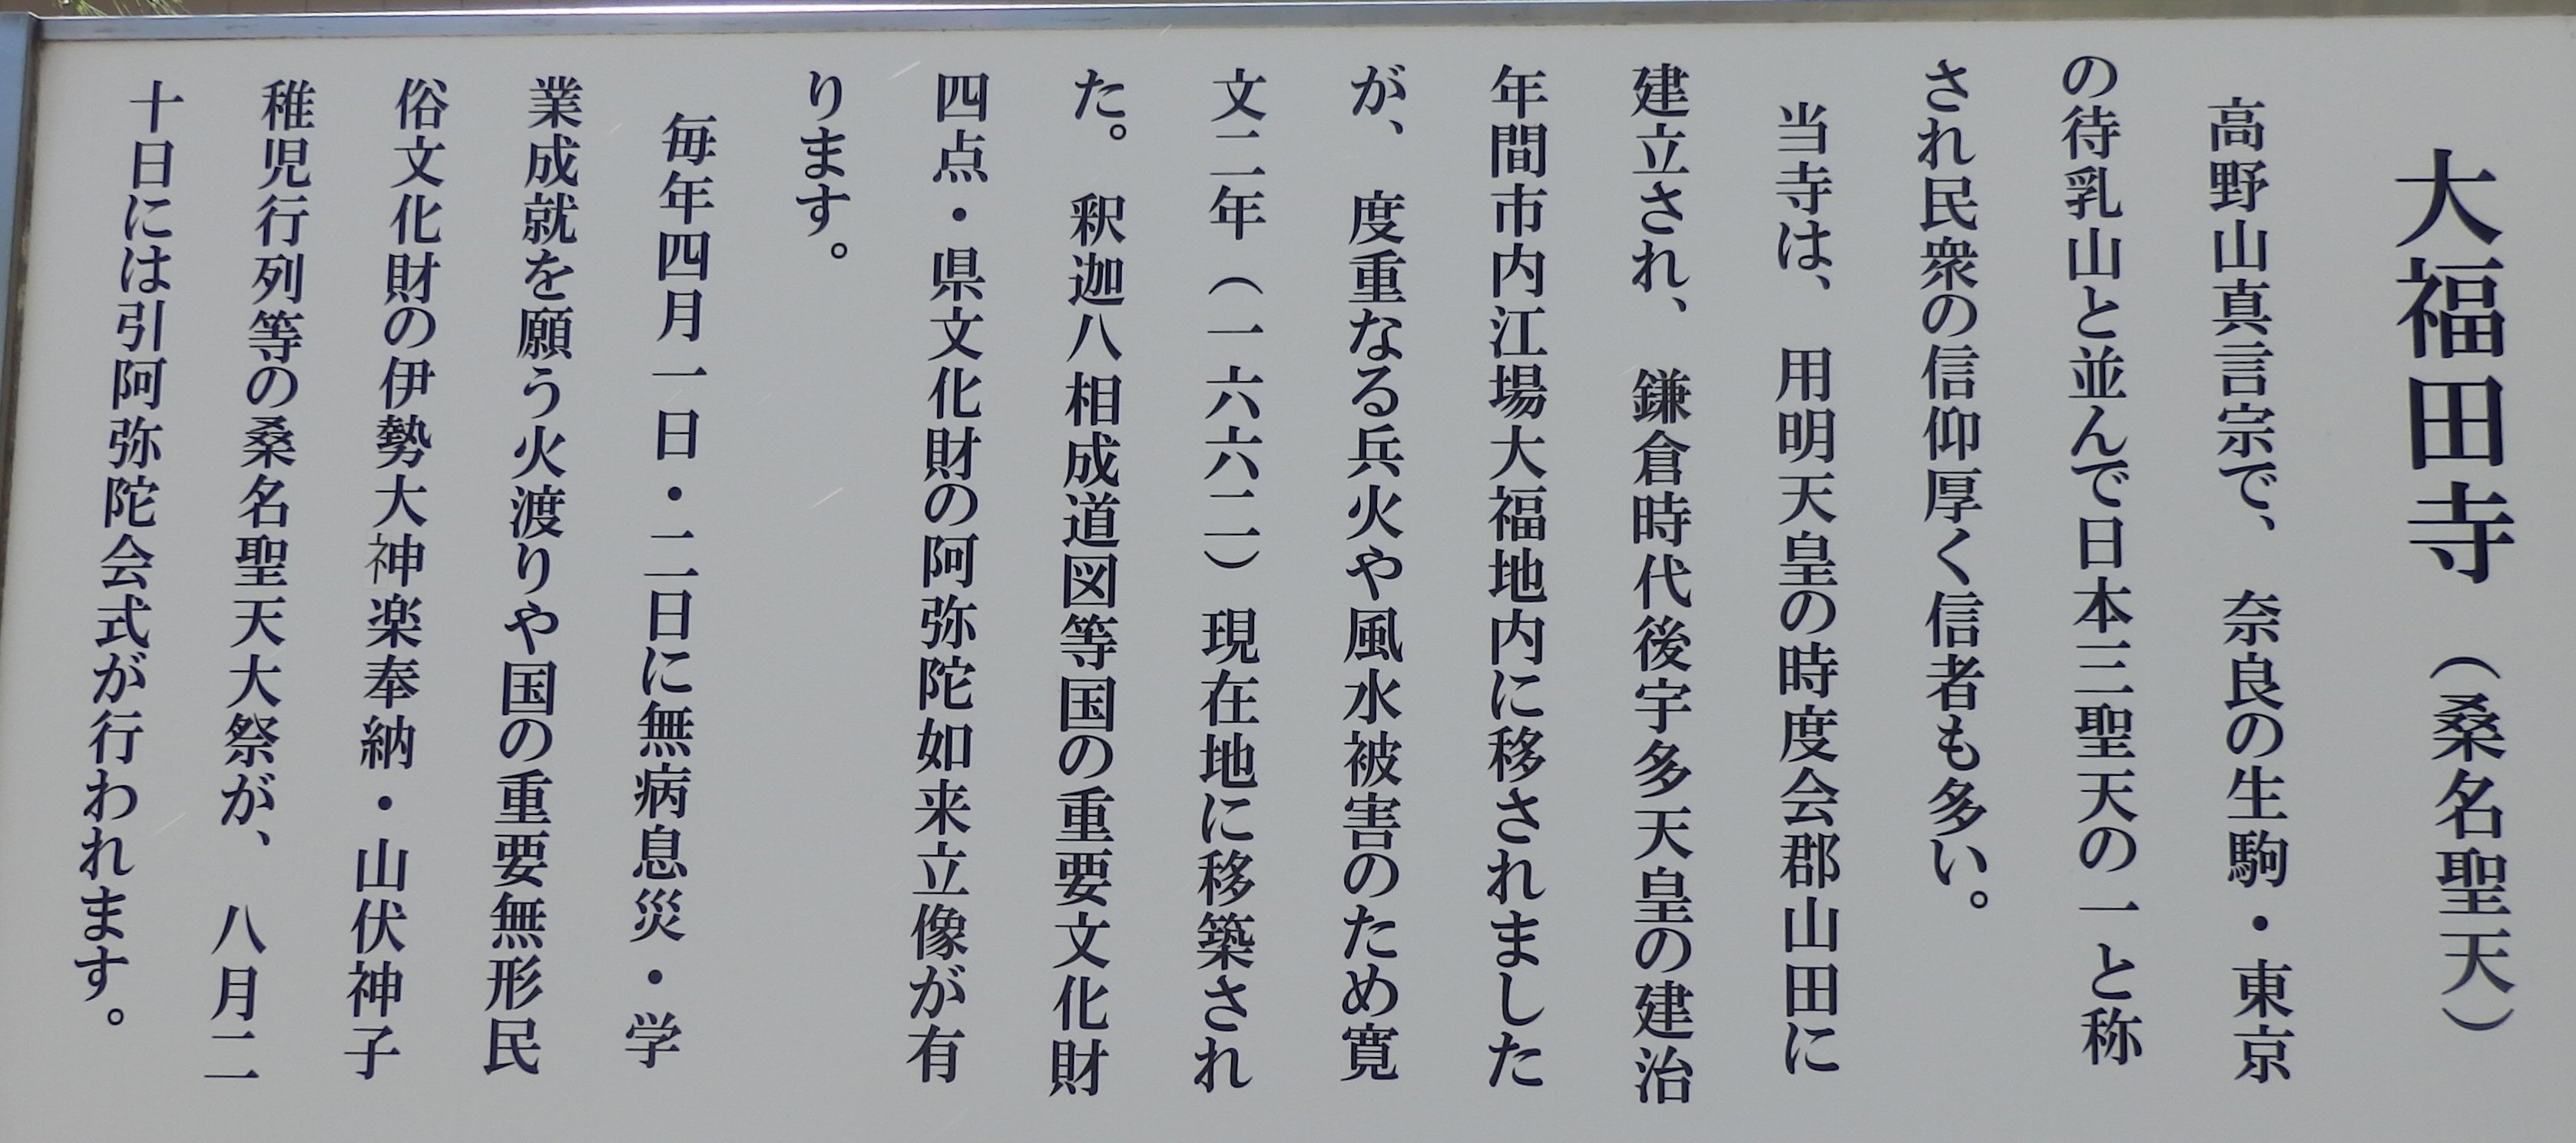 大福田寺（桑名聖天）
高野山真言宗で、奈良の生駒・東京
の待乳山と並んで日本三聖天の一と称
され民衆の信仰厚く信者も多い。
当寺は、用明天皇の時度会郡山田に
建立され、鎌倉時代後宇多天皇の建治
年間市内江場大福地内に移されました
が、度重なる兵火や風水被害のため寛
文二年（一六六二）現在地に移築され
た。釈迦八相成道図等国の重要文化財
四点・県文化財の阿弥陀如来立像が有
ります。
毎年四月一日・二日に無病息災・学
業成就を願う火渡りや国の重要無形民
俗文化財の伊勢大神楽奉納・山伏神子
稚児行列等の桑名聖天大祭が、八月二
十日には引阿弥陀会式が行われます。